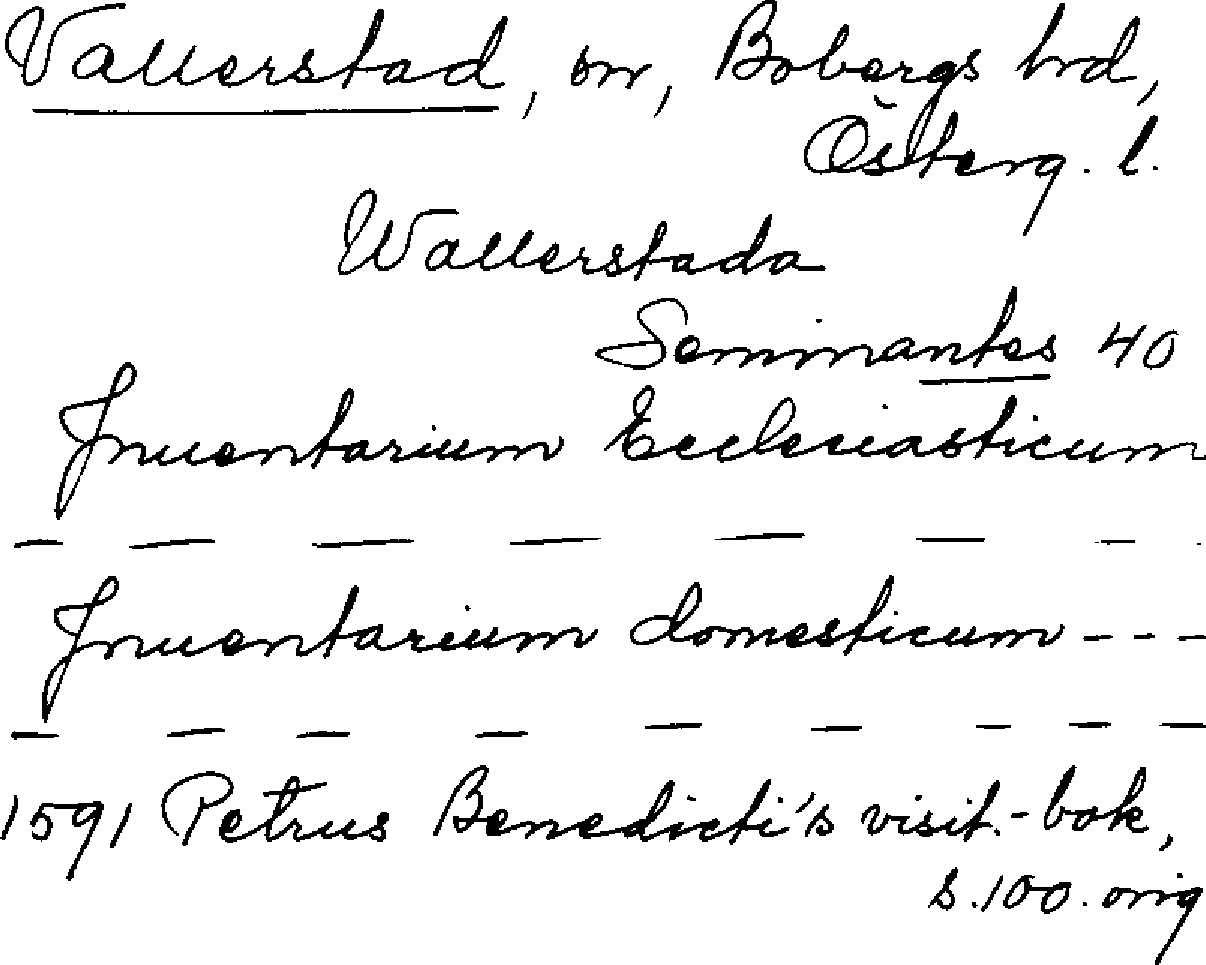 Vallerstad, sn, Bobergs hrd,
Österg. l.
Wallerstada
Seminantes 40
Inuentarium Ecclesiasticum
— — — — — — — .
Inuentarium domesticum - - -
— — — — — — — — —
1591 Petrus Benedicti's visit.-bok,
s. 100. orig